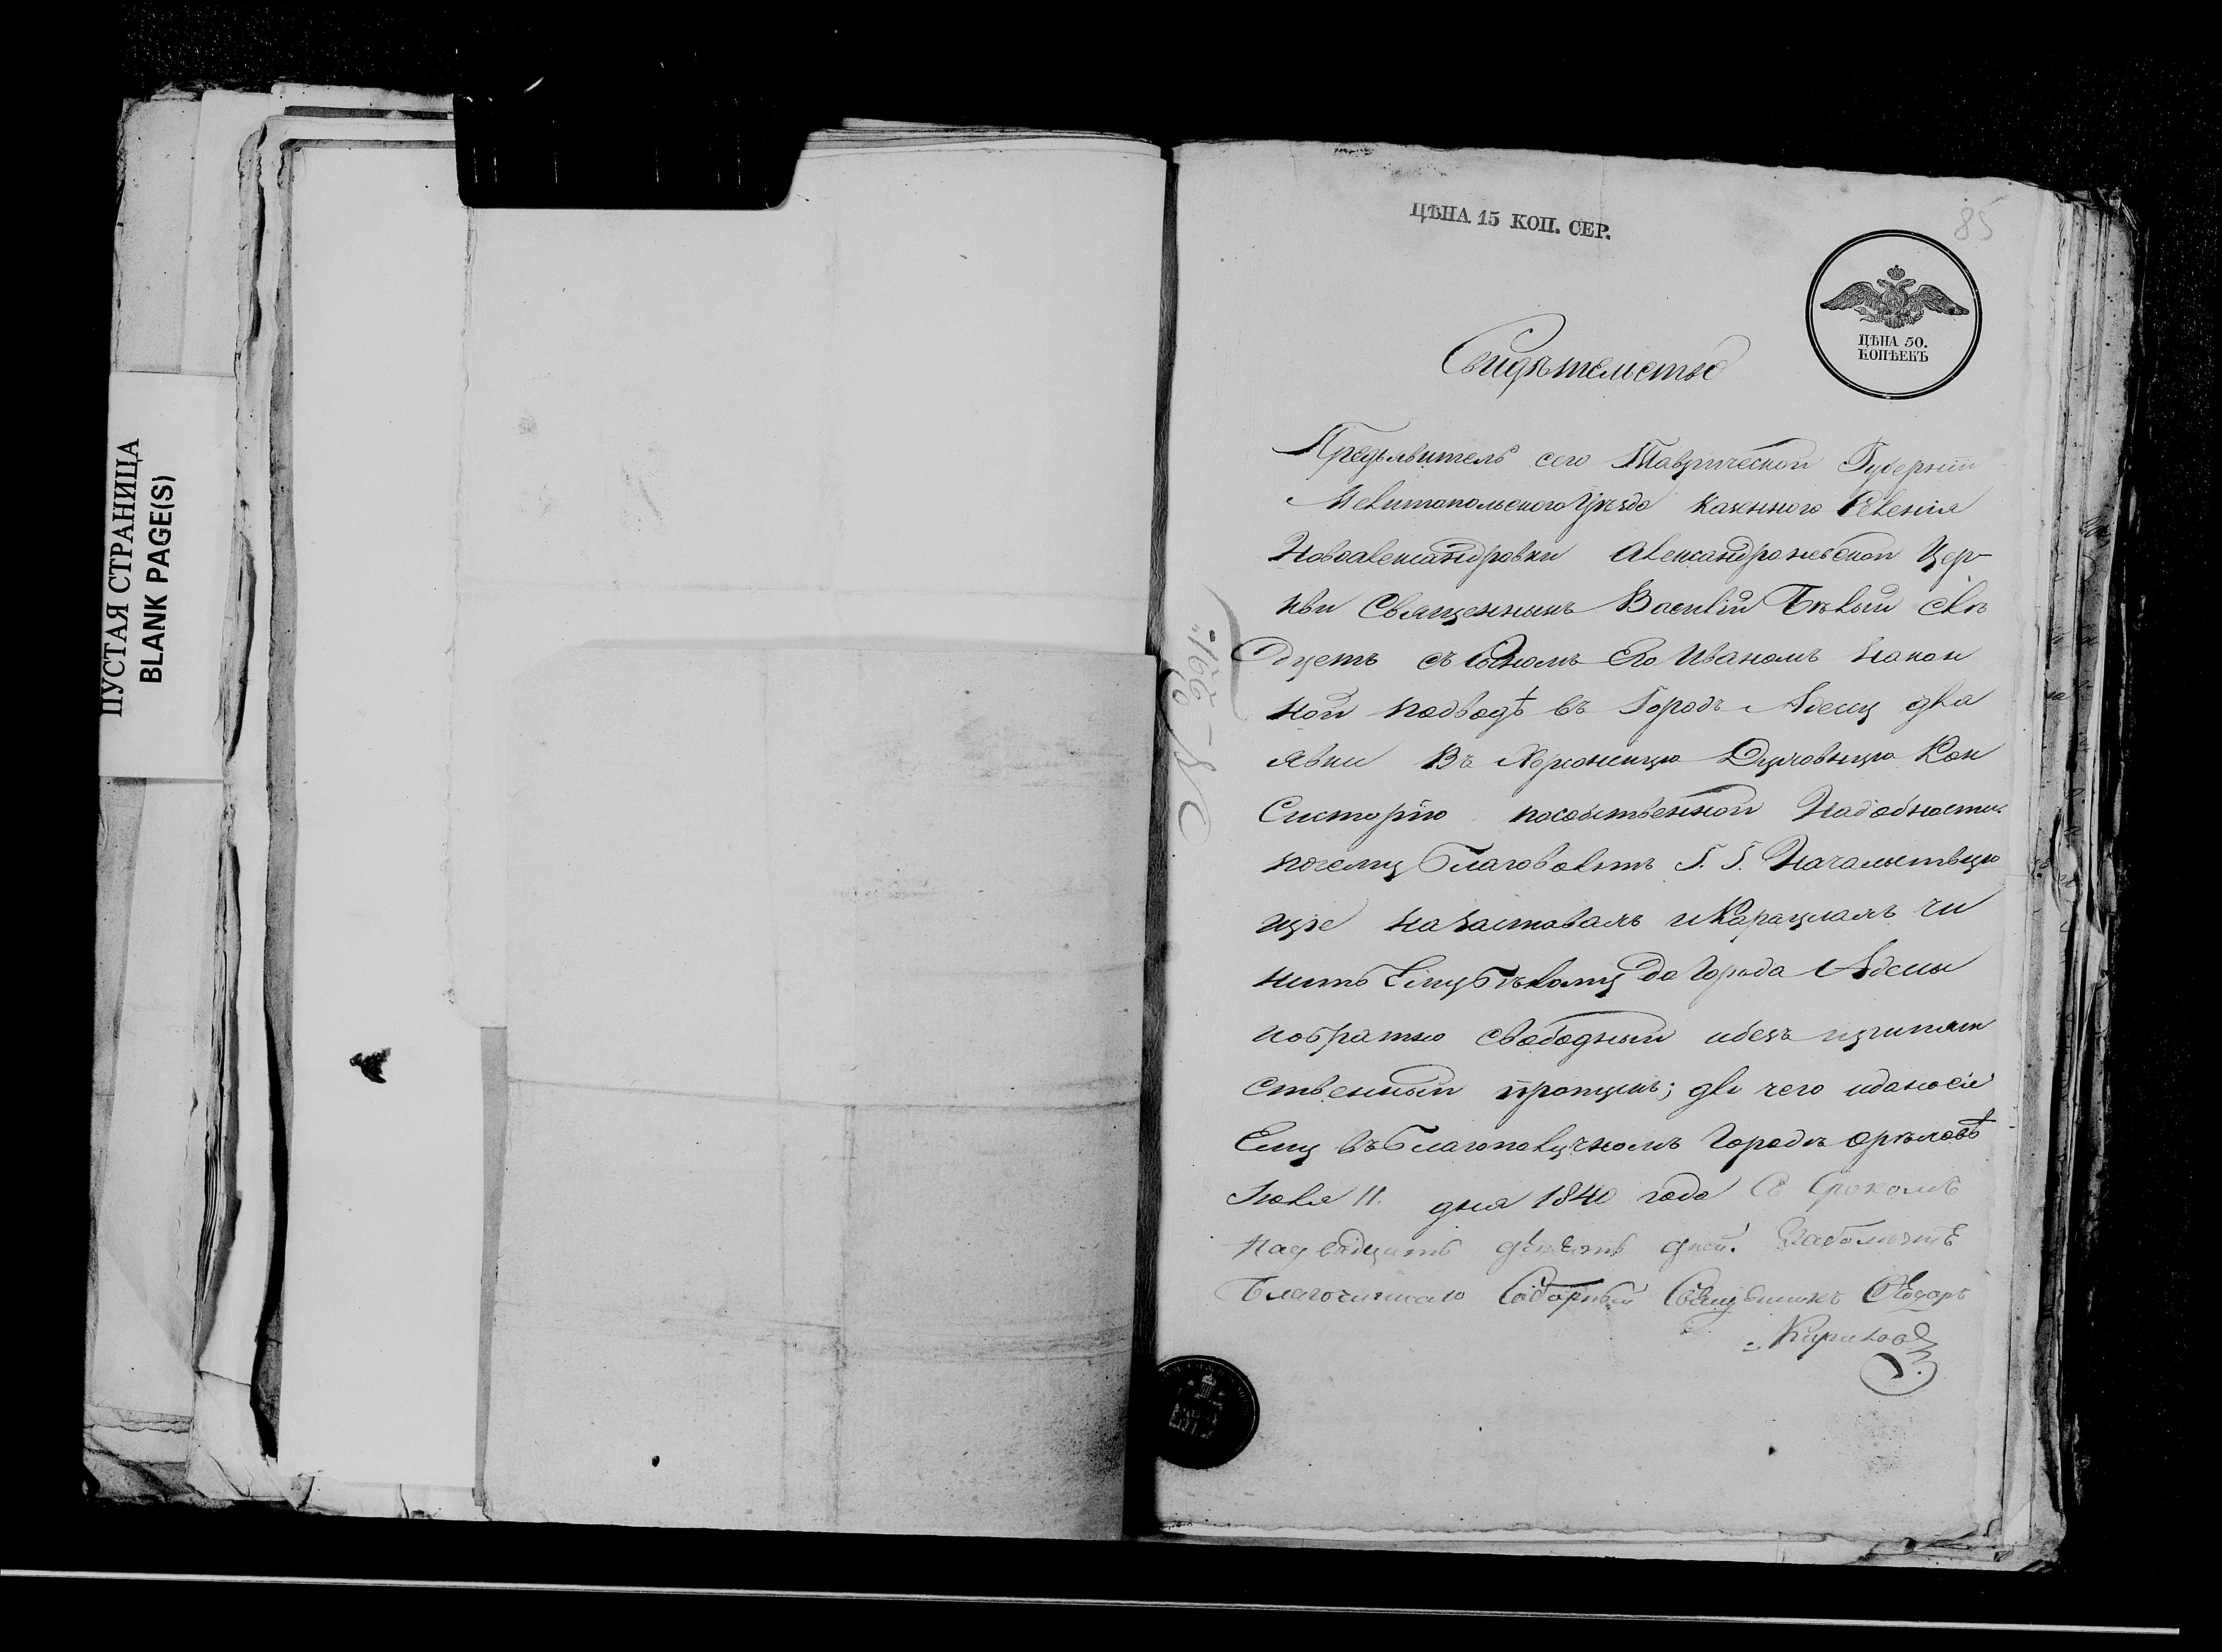 ПУСТАЯ СТРАНИЦА
BLANK PAGE(S)
ЦѢНА 15 КОП. СЕР.
85
ЦѢНА 50.
КОПѢЕКЪ
Свидѣтельство
Предъявитель сего Таврической Губерніи
Мелитопольского Уѣзда казенного Селенія
Новоалександровки Александроневской Цер-
кви Священникъ Василій Бѣлый слѣ
дуетъ съ Сыномъ Его Иваномъ на кон
ной подводѣ въ Городъ Адессу для
явки Въ Херсонскую Духовную Кон
Систорію по собственной Надобности.
почему благоволятъ Г. Г. Начальствую
щіе на заставахъ и Караулахъ чи
нить Ему Бѣлому до Города Адессы
и обратно свободный и безъ препят
ственный пропускъ; для чего и дано сіе
Ему въ благополучномъ Городѣ Орѣховѣ
Іюля 11. дня 1840 года Съ Срокомъ
На двадцать девять дней.
Благочиннаго Соборный Священникъ Ѳеодоръ
Кириловъ
№ 221.